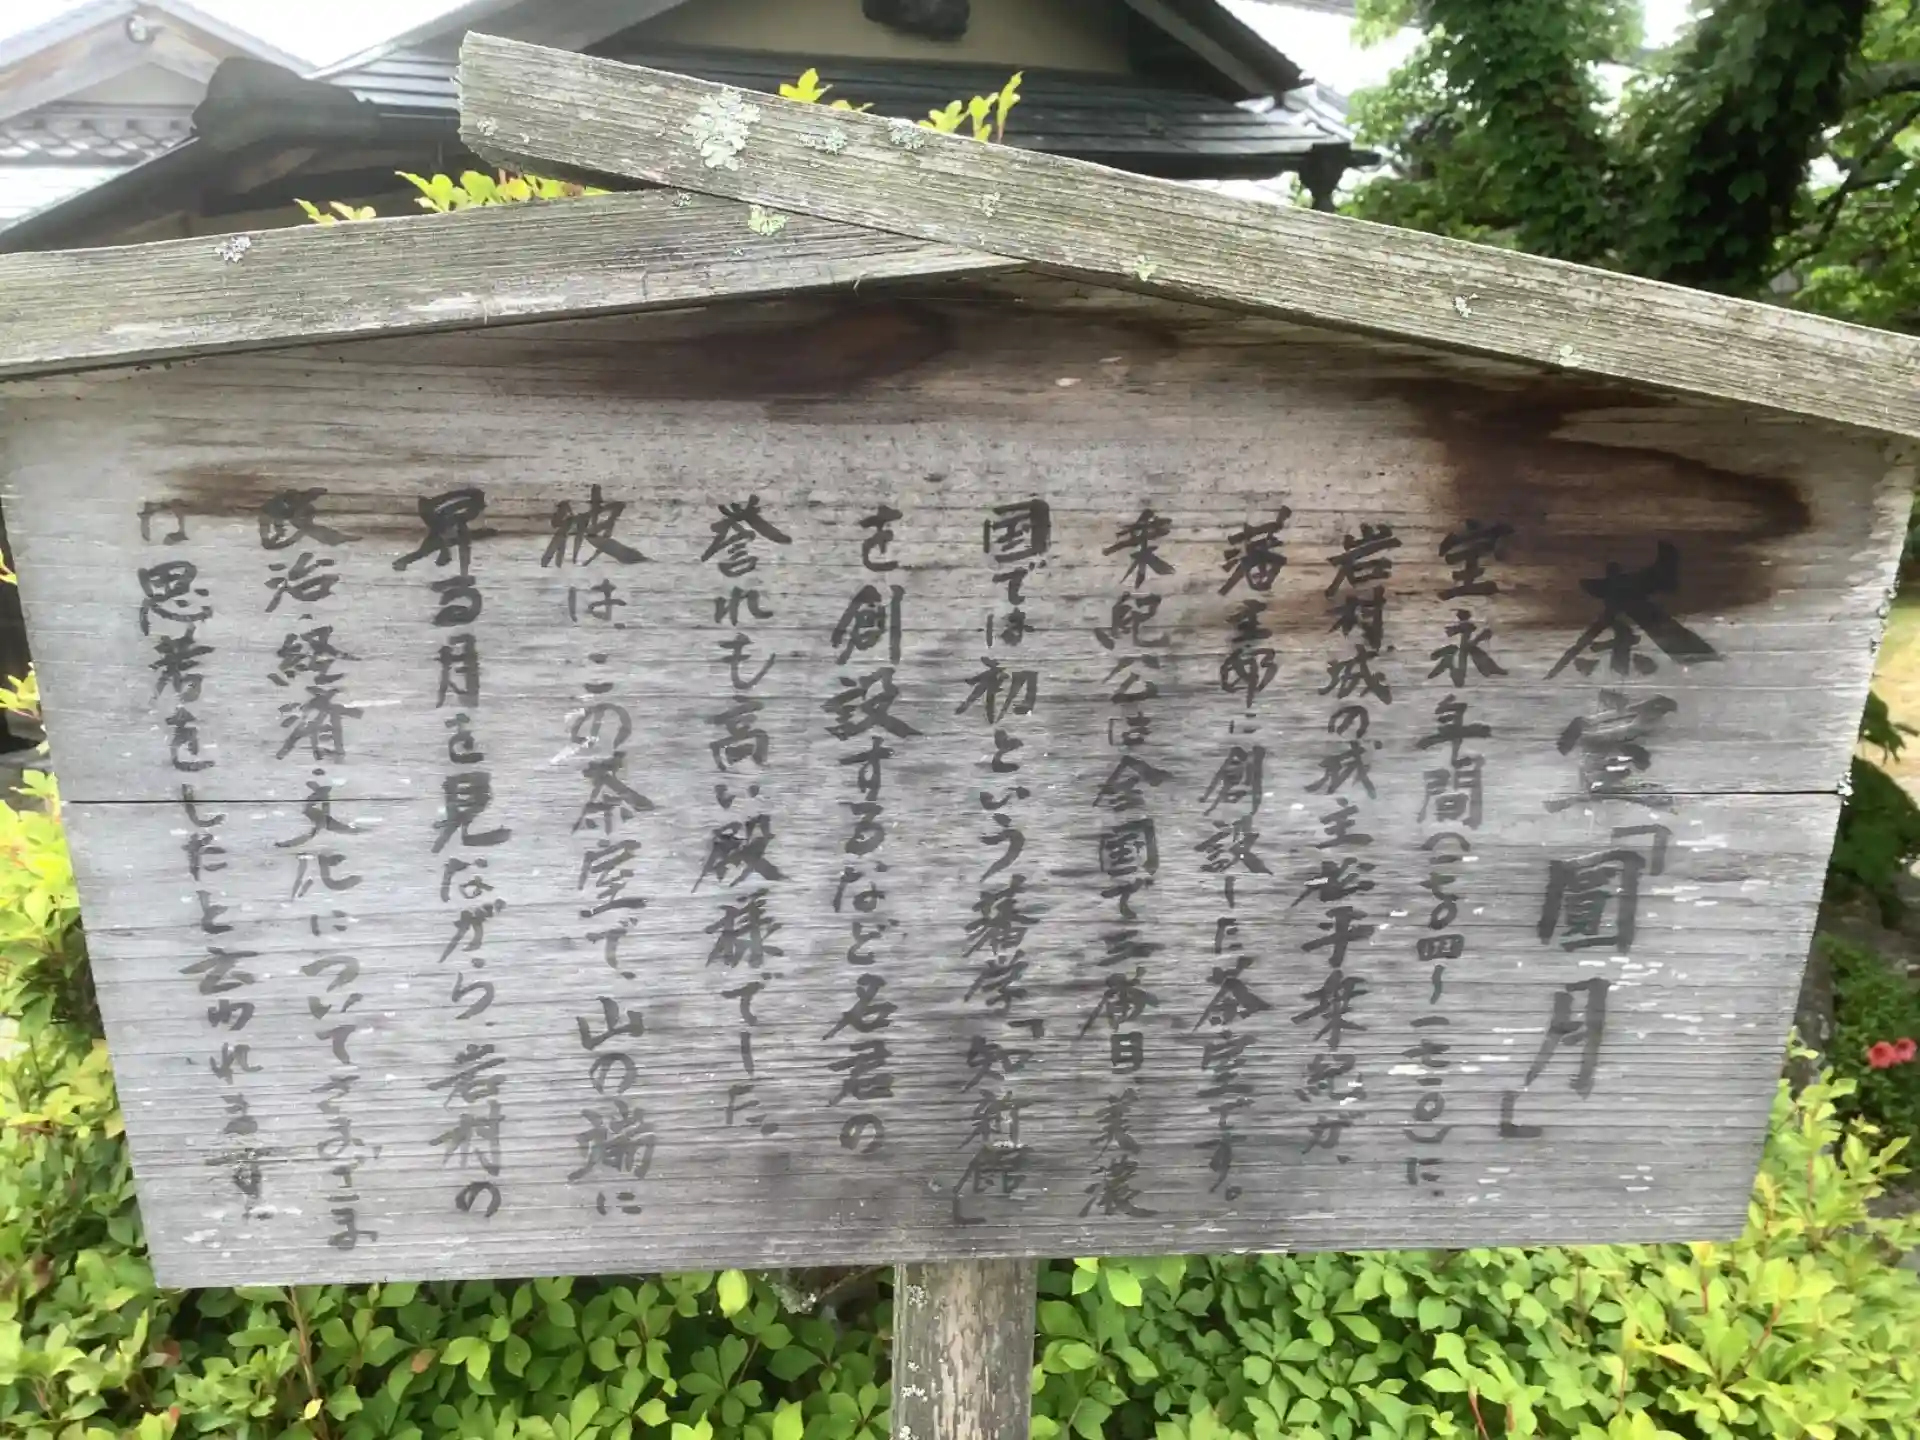 茶室「圓月」
宝永年間(一七〇四~一七一〇)に、
岩村城の城主松平乗紀が、
藩主邸に創設した茶室です。
乗紀公は全国で三番目、美濃
国では初という藩学「知新館」
を創設するなど名君の
誉れも高い殿様でした。
彼は、この茶室で、山の端に
昇る月を見ながら、岩村の
政治・経済・文化についてさまざま
な思考をしたと云われます。